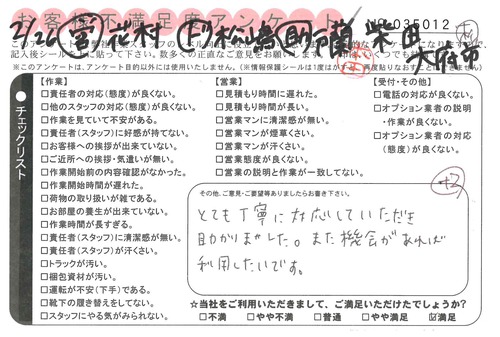 お客様満足度アンケート
2/26 営 花村 松嶋 助 蘭 035012
このアンケートは
記入後シール
※このアンケートは、アンケート目的以外には使用いたしません。（※情報保護シールは1度はがすと再度貼りなおすことができません）
チェックリスト
【作業】
□責任者の対応（態度）が良くない。
□他のスタッフの対応（態度）が良くない。
□作業を見ていて不安がある。
□責任者（スタッフ）に好感が持てない。
□お客様への挨拶が出来ていない。
□ご近所への挨拶・気遣いが無い。
□作業開始前の内容確認がなかった。
□作業開始時間が遅れた。
□荷物の取り扱いが雑である。
□お部屋の養生が出来ていない。
□作業時間が長すぎる。
□責任者（スタッフ）に清潔感が無い。
□責任者（スタッフ）が汗くさい。
□トラックが汚い。
□梱包資材が汚い。
□運転が不安（下手）である。
□靴下の履き替えをしてない。
□スタッフにやる気がみられない。
【営業】
□見積もり時間に遅れた。
□見積もり時間が長い。
□営業マンに清潔感が無い。
□営業マンが煙草くさい。
□営業マンが汗くさい。
□営業態度が良くない。
□営業の説明と作業が一致してない。
【受付・その他】
□電話の対応が良くない。
□オプション業者の説明
・作業が良くない。
□オプション業者の対応
（態度）が良くない。
その他、ご意見・ご要望等ありましたらお書き下さい。
とても丁寧に対応していただき
助かりました。また機会があれば
利用したいです。
☆当社をご利用いただきまして、ご満足いただけたでしょうか？
□不満 □やや不満 □普通 □やや満足 ☑満足